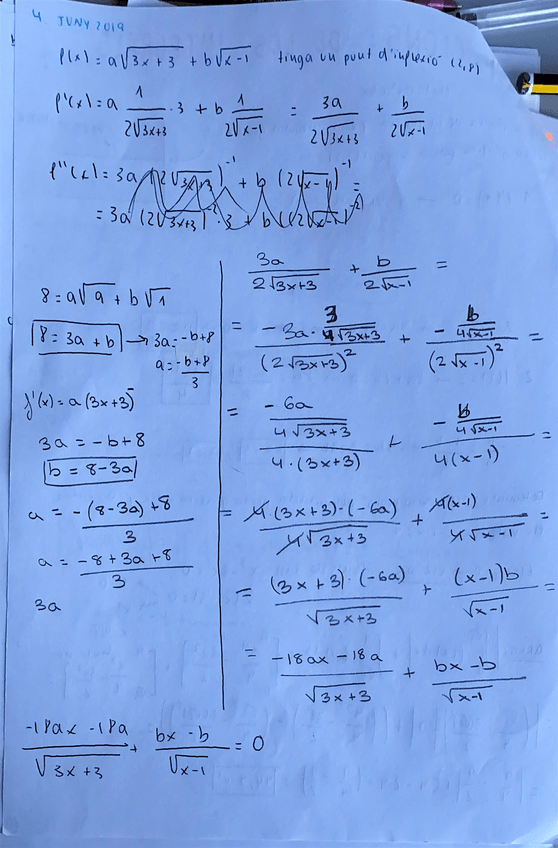 4 JUNY 2019
f(x) = a√(3x+3) + b√(x-1) tinga un punt d'inflexió (2,8)
f'(x) = a 1/(2√(3x+3)) · 3 + b 1/(2√(x-1)) = 3a/(2√(3x+3)) + b/(2√(x-1))
f''(x) = 3a (2√(3x+3))^-1 + b (2√(x-1))^-1 =
= 3a (2√(3x+3))^-2 · 3 + b ((2√(x-1))^-2)
8 = a√a + b√1
8 = 3a + b → 3a = -b+8
a = (-b+8)/3
f'(x) = a (3x+3)^-
3a = -b + 8
b = 8-3a
a = (-(8-3a)+8)/3
a = (-8+3a+8)/3
3a
3a/(2√(3x+3)) + b/(2√(x-1)) =
= (-3a · 3/(4√(3x+3)))/(2√(3x+3))² + (-b/(4√(x-1)))/(2√(x-1))² =
= (-6a/(4√(3x+3)))/(4·(3x+3)) + (-b/(4√(x-1)))/(4(x-1)) =
= (4(3x+3)·(-6a))/(4√(3x+3)) + (4(x-1))/(4√(x-1)) =
= ((3x+3)·(-6a))/√(3x+3) + ((x-1)b)/√(x-1) =
= (-18ax-18a)/√(3x+3) + (bx-b)/√(x-1)
(-18ax-18a)/√(3x+3) + (bx-b)/√(x-1) = 0